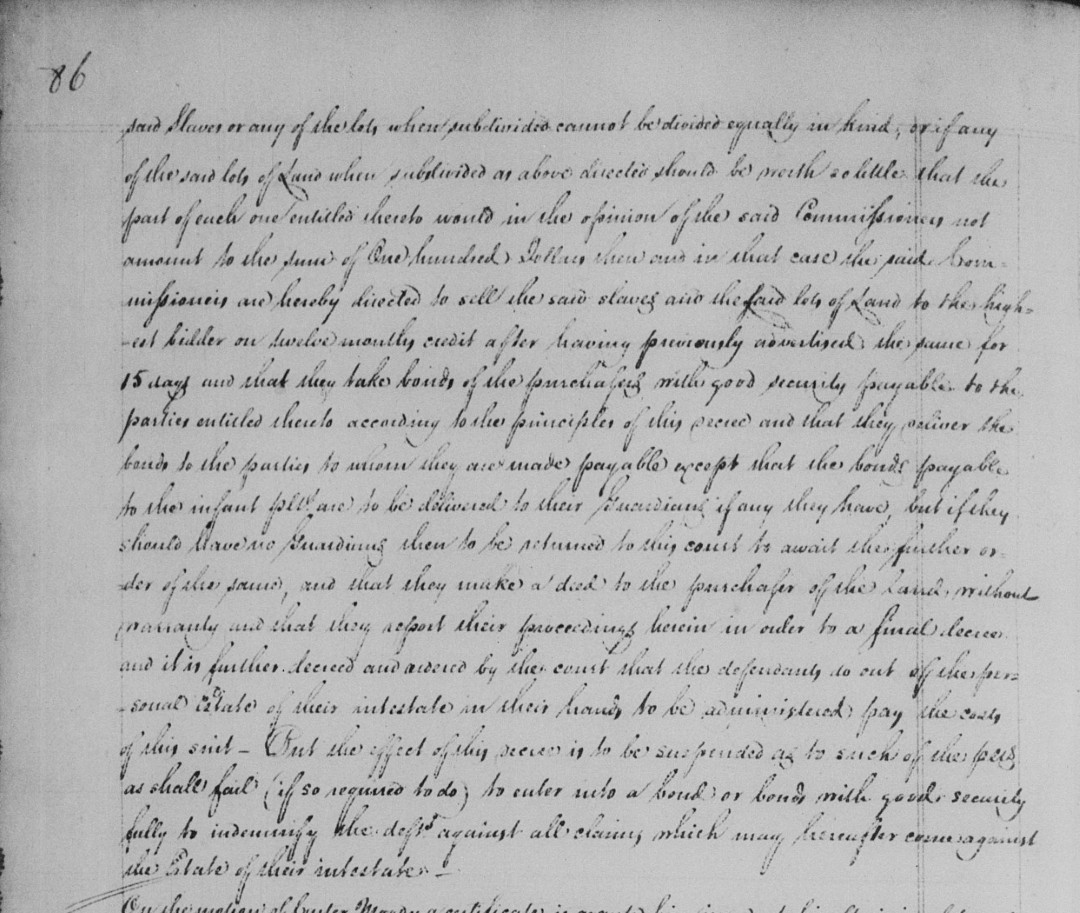 86
said Slaves or any of the lots when subdivided cannot be divided equally in kind, or if any
of the said lots of Land when subdivided as above directed should be worth so little that the
part of each one entitled thereto would in the opinion of the said Commissioners not
amount to the sum of One hundred Dollars then and in that case the said Com-
missioners are hereby directed to sell the said slaves and the said lots of Land to the high=
-est bidder on twelve months credit after having previously advertised the same for
15 days and that they take bonds of the purchasers with good security payable to the
parties entitled thereto according to the principles of this decree and that they deliver the
bonds to the parties to whom they are made payable except that the bonds payable
to the infant plts are to be delivered to their Guardians if any they have, but if they
should have no Guardians then to be returned to this court to await the further or-
-der of the same, and that they make a deed to the purchaser of the Land, without
warranty and that they report their proceedings herein in order to a final decree
and it is further decreed and ordered by the court that the defendants do out of the per-
-sonal Estate of their intestate in their hands to be administered pay the costs
of this suit - But the effect of this decree is to be suspended as to such of the plts
as shall fail (if so required to do) to enter into a bond or bonds with good security
fully to indemnify the defts against all claims which may hereafter come against
the Estate of their intestate. -
On the motion of Moody a certificate is